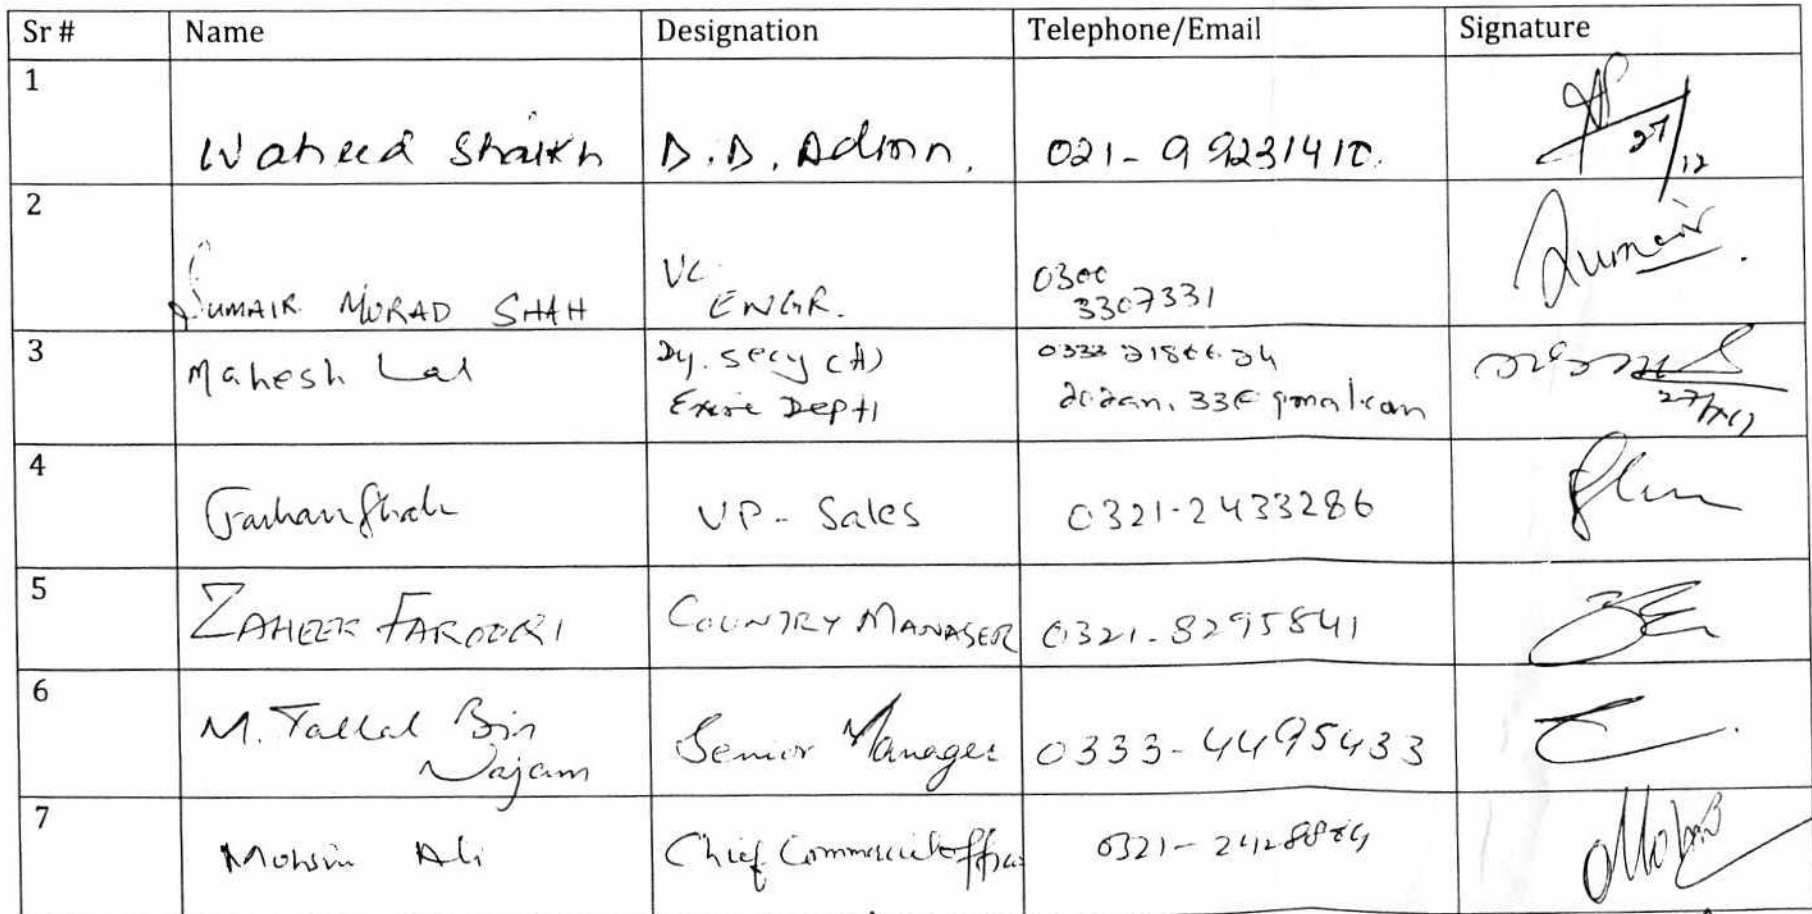 Sr # Name Designation Telephone/Email Signature
1 Waheed Shaikh D.D. Admn. 021-99231410. 27/12
2 SUMAIR MURAD SHAH
VC
ENGR.
0300
3307331
Sumair
3 Mahesh Lal
Dy. Secy (A)
Excise Deptt
0333
4 Farhan Shah VP - Sales 0321-2433286
5 ZAHEER FAROOQRI COUNTRY MANAGER 0321-8295841
6 M. Tallal Bin
Najam
Senior Manager 0333-4495433
7 Mohsin Ali Chief Commercial Officer 0321-